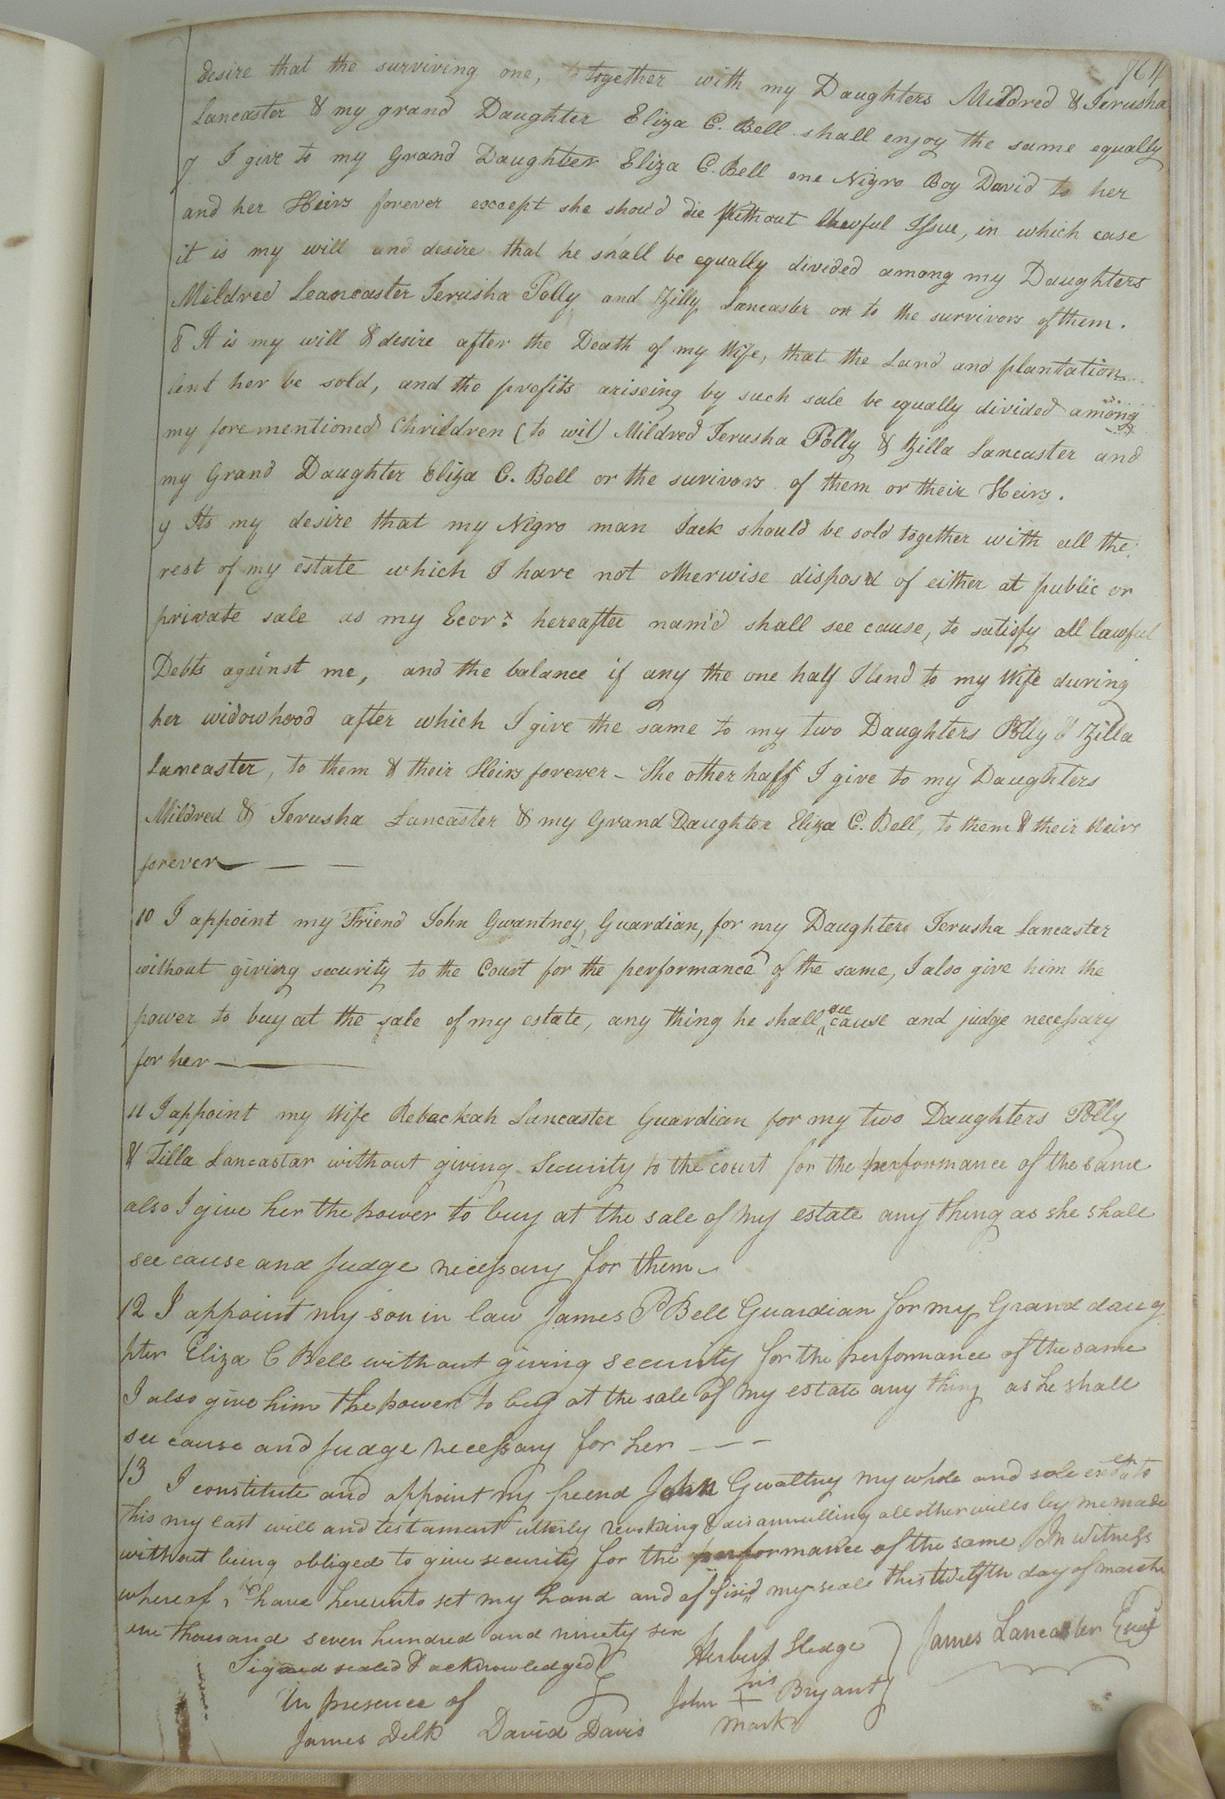 764
desire that the surviving one, together with my Daughters Mildred & Jerusha
Lancaster & my grand Daughter Eliza C. Bell shall enjoy the same equally
7 I give to my Grand Daughter Eliza C. Bell one Nigro Boy David to her
and her Heirs forever except she shou'd die without lawful Issue, in which case
it is my will and desire that he shall be equally divided among my Daughters
Mildred Leancaster Jerusha Polly and Zilly Lancaster or to the survivors of them.
8 It is my will & desire after the Death of my Wife, that the Land and plantation
lent her be sold, and the profits ariseing by such sale be equally divided among
my forementioned Chrildren (to wit) Mildred Jerusha Polly & Zilla Lancaster and
my Grand Daughter Eliza C. Bell or the surivors of them or their Heirs.
9 Its my desire that my Nigro man Jack should be sold together with all the
rest of my estate which I have not otherwise dispos'd of either at public or
private sale as my Ecors hereafter nam'd shall see cause, to satisfy all lawful
Debts against me, and the balance if any the one half I lend to my Wife during
her widowhood after which I give the same to my two Daughters Polly & Zilla
Lancaster, to them & their Heirs forever – The other half I give to my Daughters
Mildred & Jerusha Lancaster & my Grand Daughter Eliza C. Bell, to them & their Heirs
forever — — —
10 I appoint my Friend John Gwantney, Guardian, for my Daughters Jerusha Lancaster
without giving security to the Court for the performance of the same, I also give him the
power to buy at the sale of my estate, any thing he shall see cause and judge necessary
for her — —
11 I appoint my Wife Rebackah Lancaster Guardian for my two Daughters Polly
& Zilla Lancastar without giving Security to the court for the performance of the same
also I give her the power to buy at the sale of my estate any thing as she shall
see cause and Judge necessary for them –
12 I appoint my son in law James P Bell Guardian for my Grand daug
hter Eliza C Bell without giving security for the performance of the same
I also give him the power to buy at the sale of my estate any thing as he shall
see cause and Judge necessary for her — — —
13 I constitute and appoint my freend John Gwaltney my whole and sole to
this my last will and testament utterly revokeing & disannulling all other wills by me made
without being obliged to give security for the performance of the same In Witness
whereof I have hereunto set my hand and affixed my seale this twelfth day of march
one thousand seven hundred and ninety six
Signed sealed & acknowledged Herbert Hedge James Lancaster
in presence of John his Bryant
James Delk David Davis mark